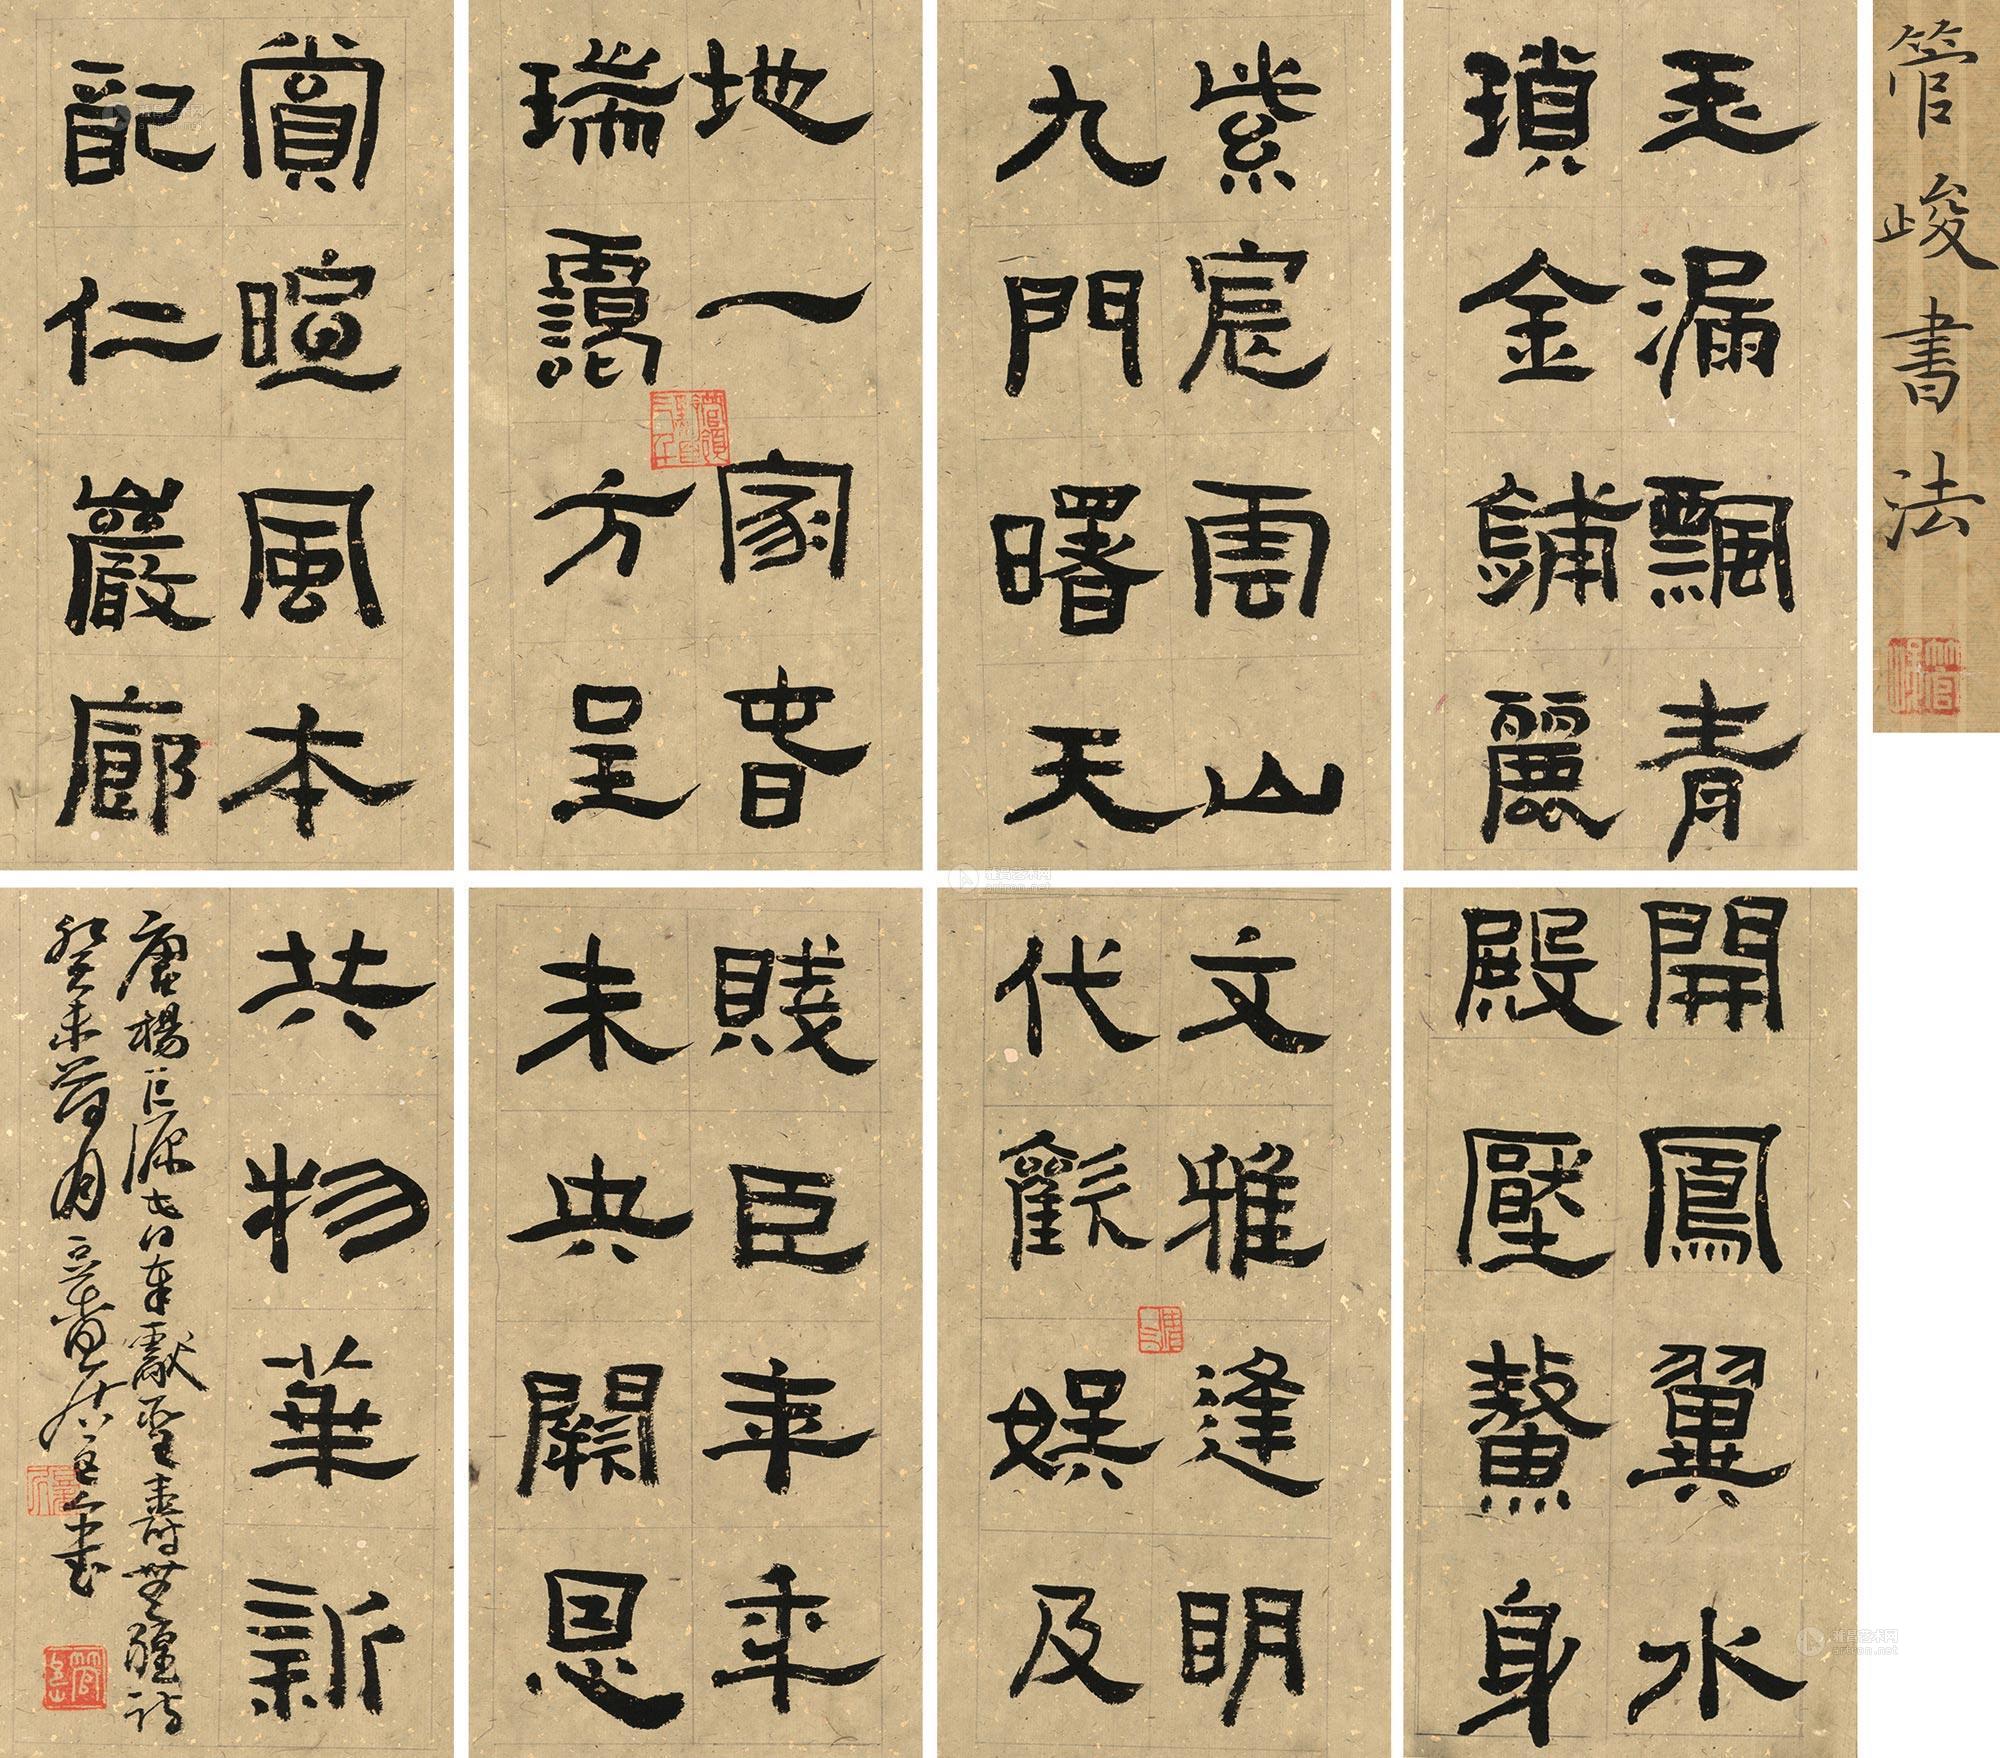 管峻書法
玉漏飄青
瑣金鋪麗
紫宸雲山
九門曙天
地一家春
瑞靄方呈
賞暄風本
配仁巖廊
開鳳翼水
殿壓鰲身
文雅逢明
代歡娛及
賤臣年年
未央闕恩
共物華新
唐楊巨源春日奉獻聖壽無疆詩
癸未荷月居主人書
管峻
雅昌艺术网
artron.net